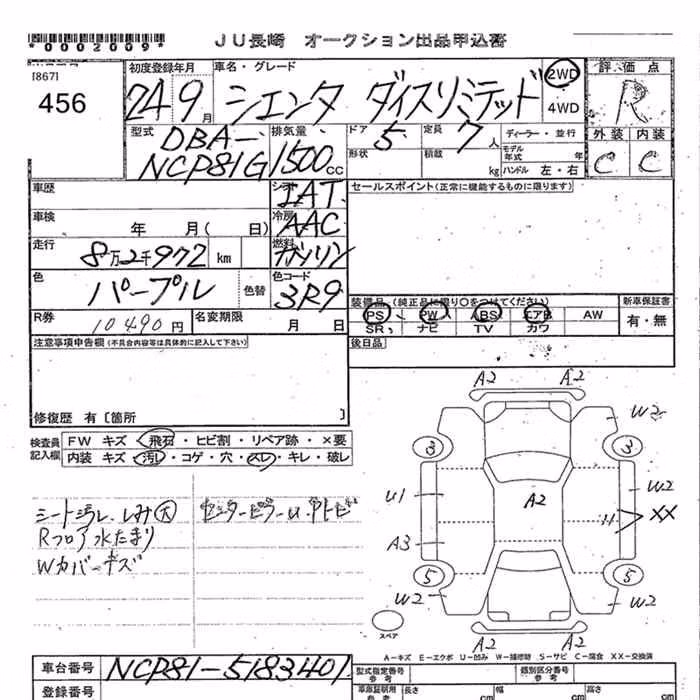 *0002009*
JU長崎 オークション出品申込書
[867]
456
初度登録年月
24 9月
車名・グレード
シエンタ ダイスリミテッド
2WD
4WD
評価点
R
外装 内装
C C
型式
DBA-
NCP81G
排気量
1500cc
ドア
5
形状
定員
7人
積載
kg
ディーラー・並行
モデル年式 年
ハンドル 左・右
車歴
シフト
IAT
セールスポイント(正常に機能するものに限ります)
車検
年 月( 日)
冷房
AAC
走行
8万2千972 km
燃料
ガソリン
色
パープル
色替
色コード
3R9
装備品 (純正品に限り○をつけてください)
PS PW ABS エアB AW
SR ナビ TV カワ
新車保証書
有・無
R券
10490円
名変期限
月 日
後日品
注意事項申告欄(不具合内容等は具体的に記入して下さい)
修復歴 有〔箇所 〕
検査員
記入欄
FW キズ・飛石・ヒビ割・リペア跡・×要
内装 キズ・汚れ・コゲ・穴・スレ・キレ・破レ
シート汚レ、しみ大
Rフロア水たまり
Wカバーキズ
センターピラーu.
A2 A2
W2
3 3
u1
W2
A2
XX
A3
5 5
W2 W2
A2 A2
スペア
A-キズ E-エクボ U-凹み W-補修跡 S-サビ C-腐食 XX-交換済
車台番号
NCP81-5183401
登録番号
型式指定番号
参考
類別区分番号
参考
車庫証明用
参考
長さ
cm
幅
cm
高さ
cm